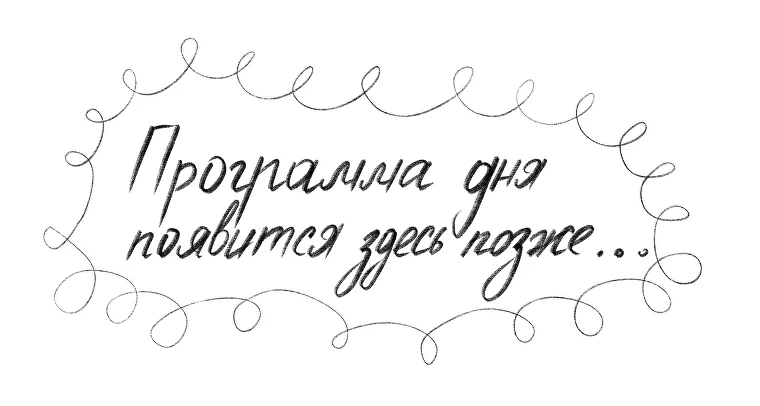 Программа дня
появится здесь позже...